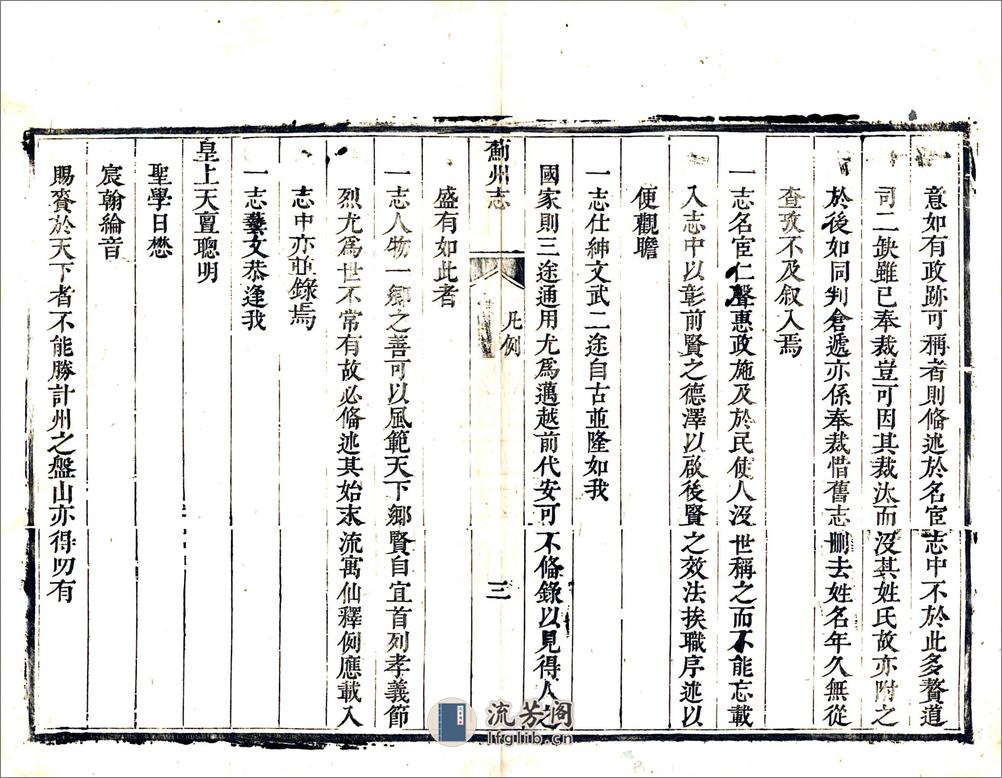 意如有政跡可稱者則備述於名宦志中不於此多贅道
司二缺雖已奉裁豈可因其裁汰而沒其姓氏故亦附之
於後如同判倉遞亦係奉裁惜舊志刪去姓名年久無從
查攷不及叙入焉
一志名宦仁聲惠政施及於民使人沒世稱之而不能忘載
入志中以彰前賢之德澤以啟後賢之效法挨職序述以
便觀瞻
一志仕紳文武二途自古並隆如我
國家則三途通用尤為邁越前代安可不備錄以見得人之
盛有如此者
薊州志
凡例
三
一志人物一鄉之善可以風範天下鄉賢自宜首列孝義節
烈尤為世不常有故必備述其始末流寓仙釋例應載入
志中亦並錄焉
一志藝文恭逢我
皇上天亶聰明
聖學日懋
宸翰綸音
賜賚於天下者不能勝計州之盤山亦得叨有
流芳閣
lfglib.cn